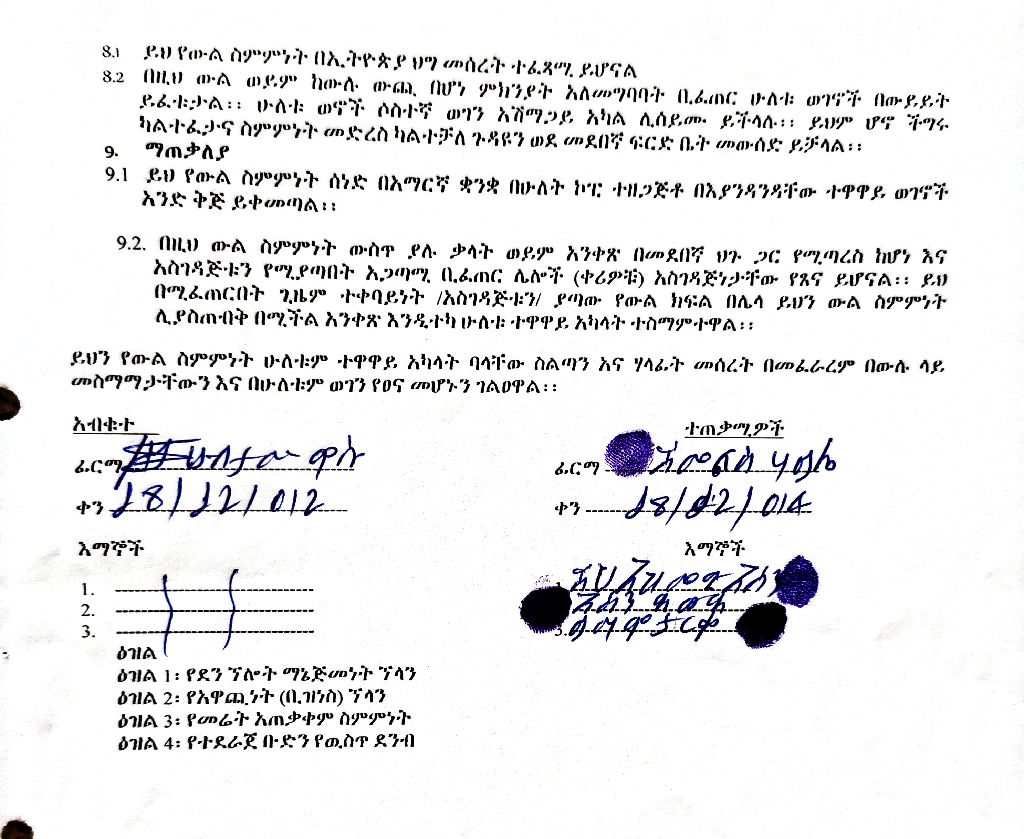 8.1 ይህ የውል ስምምነት በኢትዮጵያ ህግ መሰረት ተፈጻሚ ይሆናል
8.2 በዚህ ውል ወይም ከውሉ ውጪ በሆነ ምክንያት አለመግባባት ቢፈጠር ሁለቱ ወገኖች በውይይት
ይፈቱታል፡፡ ሁለቱ ወኖች ሶስተኛ ወገን አሸማጋይ አካል ሊሰይሙ ይችላሉ፡፡ ይህም ሆኖ ችግሩ
ካልተፈታና ስምምነት መድረስ ካልተቻለ ጉዳዩን ወደ መደበኛ ፍርድ ቤት መውሰድ ይቻላል፡፡
9. ማጠቃለያ
9.1 ይህ የውል ስምምነት ሰነድ በአማርኛ ቋንቋ በሁለት ኮፒ ተዘጋጅቶ በእያንዳንዳቸው ተዋዋይ ወገኖች
አንድ ቅጅ ይቀመጣል፡፡
9.2. በዚህ ውል ስምምነት ውስጥ ያሉ ቃላት ወይም አንቀጽ በመደበኛ ህጉ ጋር የሚጣረስ ከሆነ እና
አስገዳጅቱን የሚያጣበት አጋጣሚ ቢፈጠር ሌሎች (ቀሪዎቹ) አስገዳጅነታቸው የጸና ይሆናል፡፡ ይህ
በሚፈጠርበት ጊዜም ተቀባይነት /አስገዳጅቱን/ ያጣው የውል ክፍል በሌላ ይህን ውል ስምምነት
ሊያስጠብቅ በሚችል አንቀጽ እንዲተካ ሁለቱ ተዋዋይ አካላት ተስማምተዋል፡፡
ይህን የውል ስምምነት ሁለቱም ተዋዋይ አካላት ባላቸው ስልጣን እና ሃላፊት መሰረት በመፈራረም በውሉ ላይ
መስማማታቸውን እና በሁለቱም ወገን የፀና መሆኑን ገልፀዋል፡፡
አብቁተ
ተጠቃሚዎች
ፊርማ
ፊርማ
ቀን 18/12/012
ቀን 18/12/014
እማኞች
እማኞች
1.
2.
3.
3.
ዕዝል
ዕዝል 1፡ የደን ኘሎት ማኔጅመነት ኘላን
ዕዝል 2፡ የአዋጪነት (ቢዝነስ) ኘላን
ዕዝል 3፡ የመሬት አጠቃቀም ስምምነት
ዕዝል 4፡ የተደራጀ ቡድን የዉስጥ ደንብ